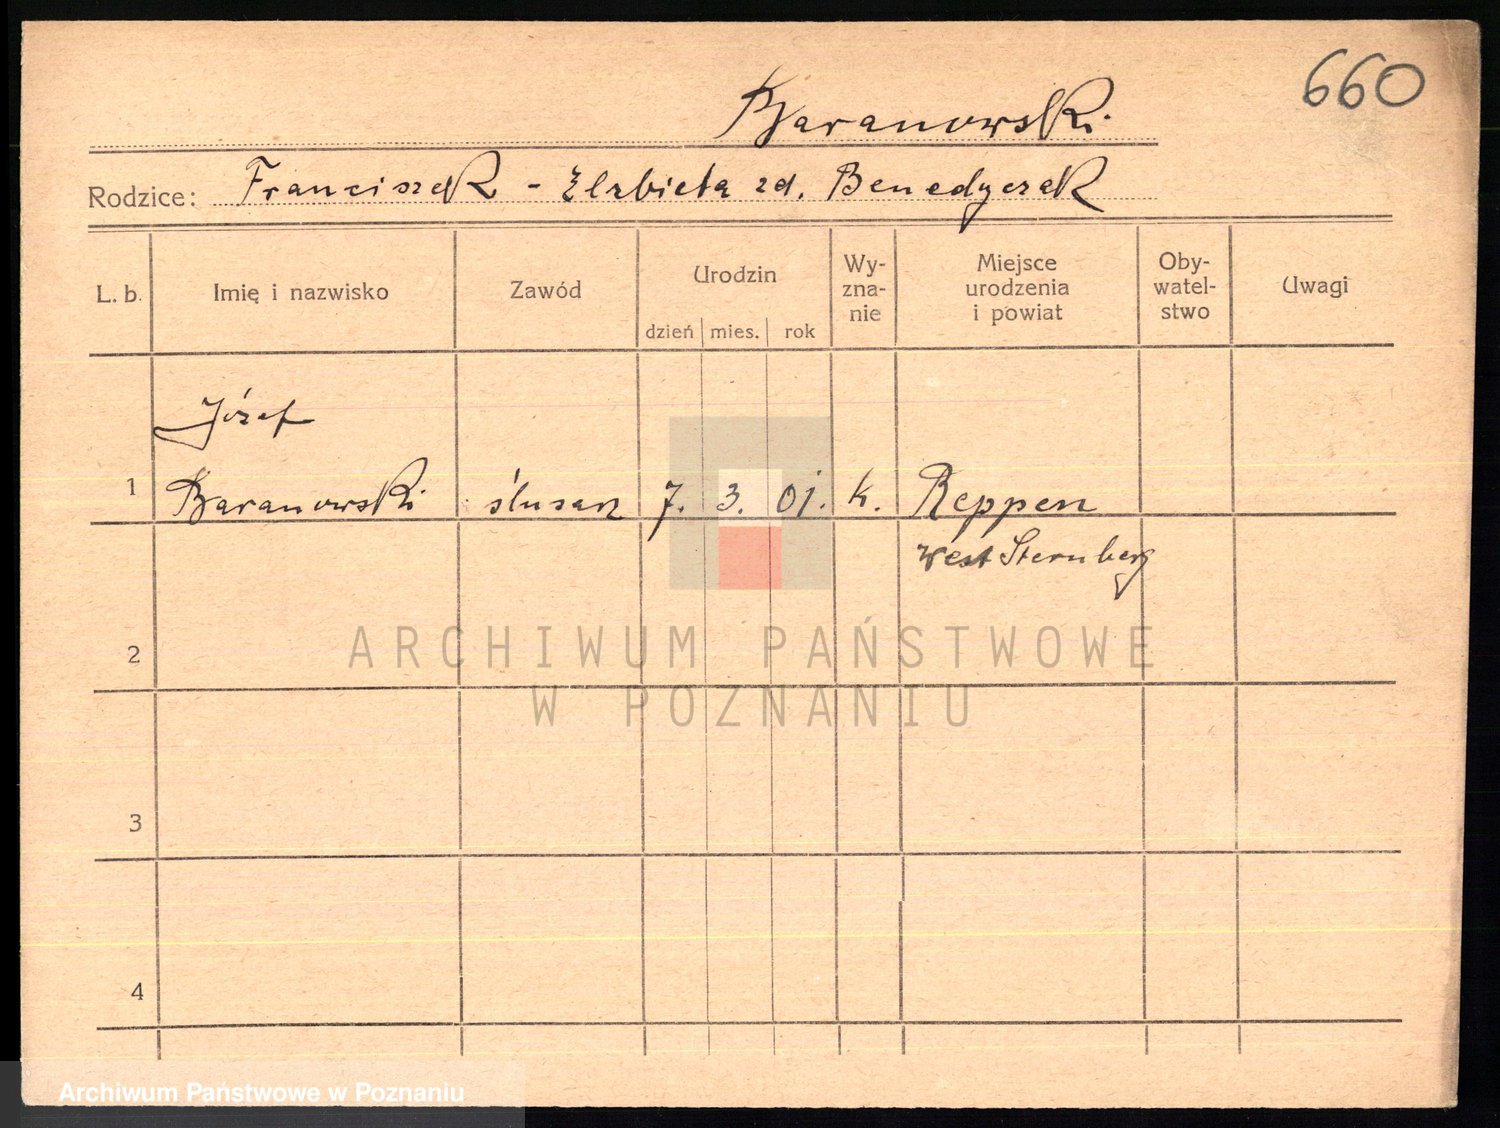 660
Baranowski
Rodzice: Franciszek - Elżbieta zd. Benedyczak
L. b. Imię i nazwisko Zawód Urodzin Wyznanie Miejsce urodzenia i powiat Obywatelstwo Uwagi
dzień mies. rok
Józef
1 Baranowski ślusarz 7. 3. 01. k. Reppen
West Sternberg
2
3
4
ARCHIWUM PAŃSTWOWE
W POZNANIU
Archiwum Państwowe w Poznaniu